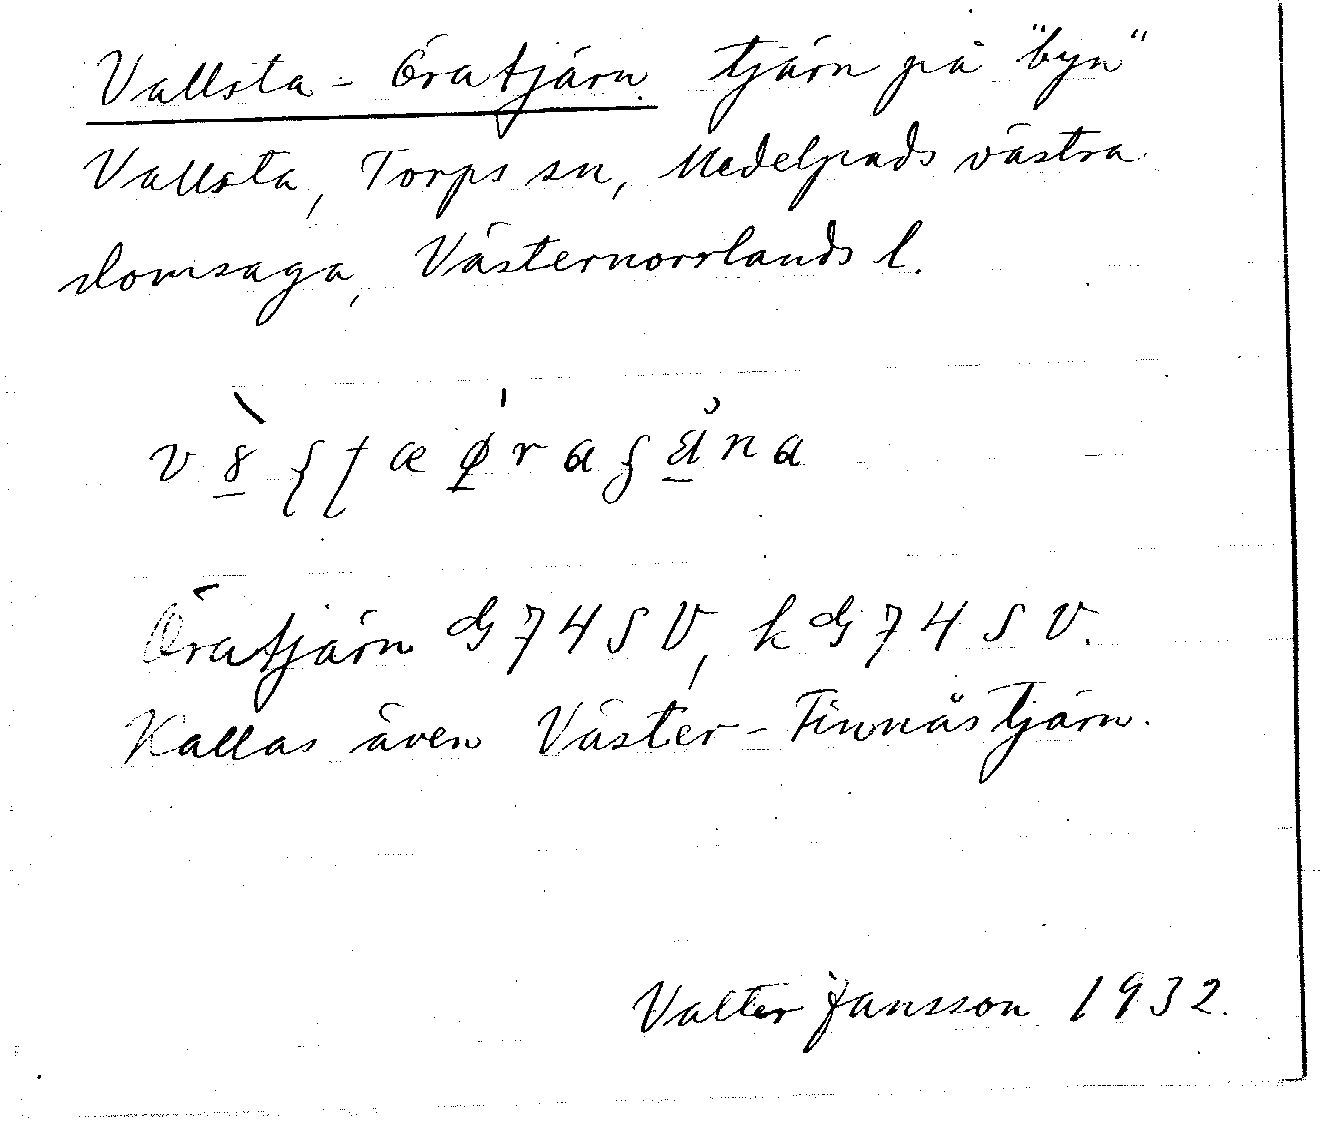 Vallsta - Öratjärn. tjärn på "byn"
Vallsta, Torps sn, Medelpads västra
domsaga, Västernorrlands l.
Öratjärn G 74 S V, k G 74 S V.
Kallas även Väster-Finnästjärn.
Valter Jansson 1932.